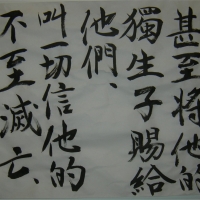 甚至將他的
獨生子賜給
他們、
叫一切信他的
不至滅亡、